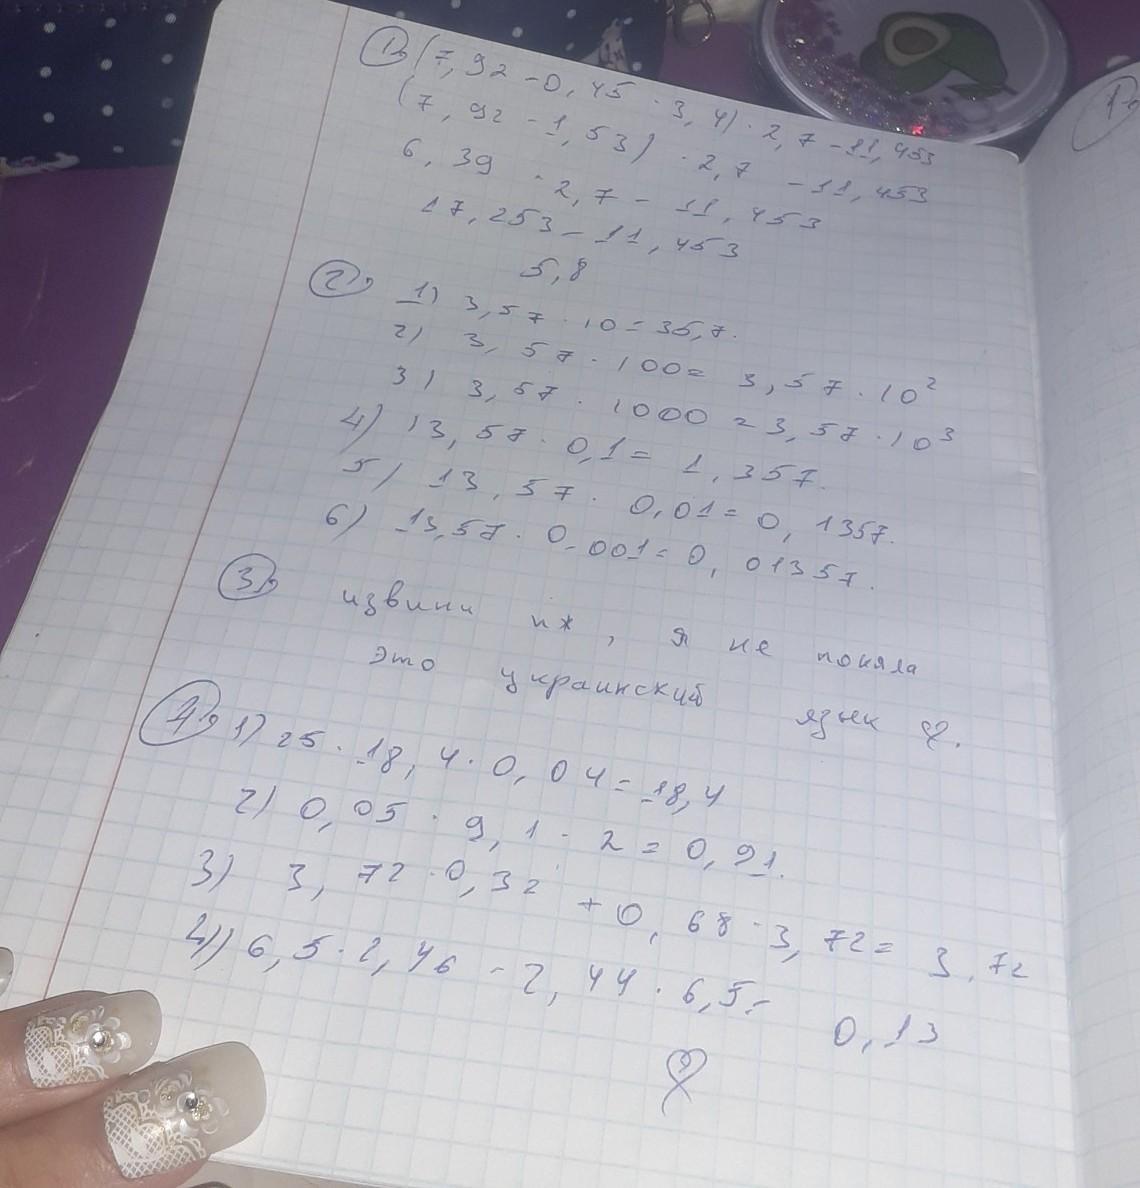 1) (7,92 - 0,45 · 3,4) · 2,7 - 11,453
(7,92 - 1,53) · 2,7 - 11,453
6,39 · 2,7 - 11,453
17,253 - 11,453
5,8
2) 1) 3,57 · 10 = 35,7.
2) 3,57 · 100 = 3,57 · 10²
3) 3,57 · 1000 = 3,57 · 10³
4) 13,57 · 0,1 = 1,357.
5) 13,57 · 0,01 = 0,1357.
6) 13,57 · 0,001 = 0,01357.
3) извини пж, я не поняла
это украинский язык
4) 1) 25 · 18,4 · 0,04 = 18,4
2) 0,05 · 9,1 · 2 = 0,91.
3) 3,72 · 0,32 + 0,68 · 3,72 = 3,72
4) 6,5 · 2,46 - 2,44 · 6,5 = 0,13